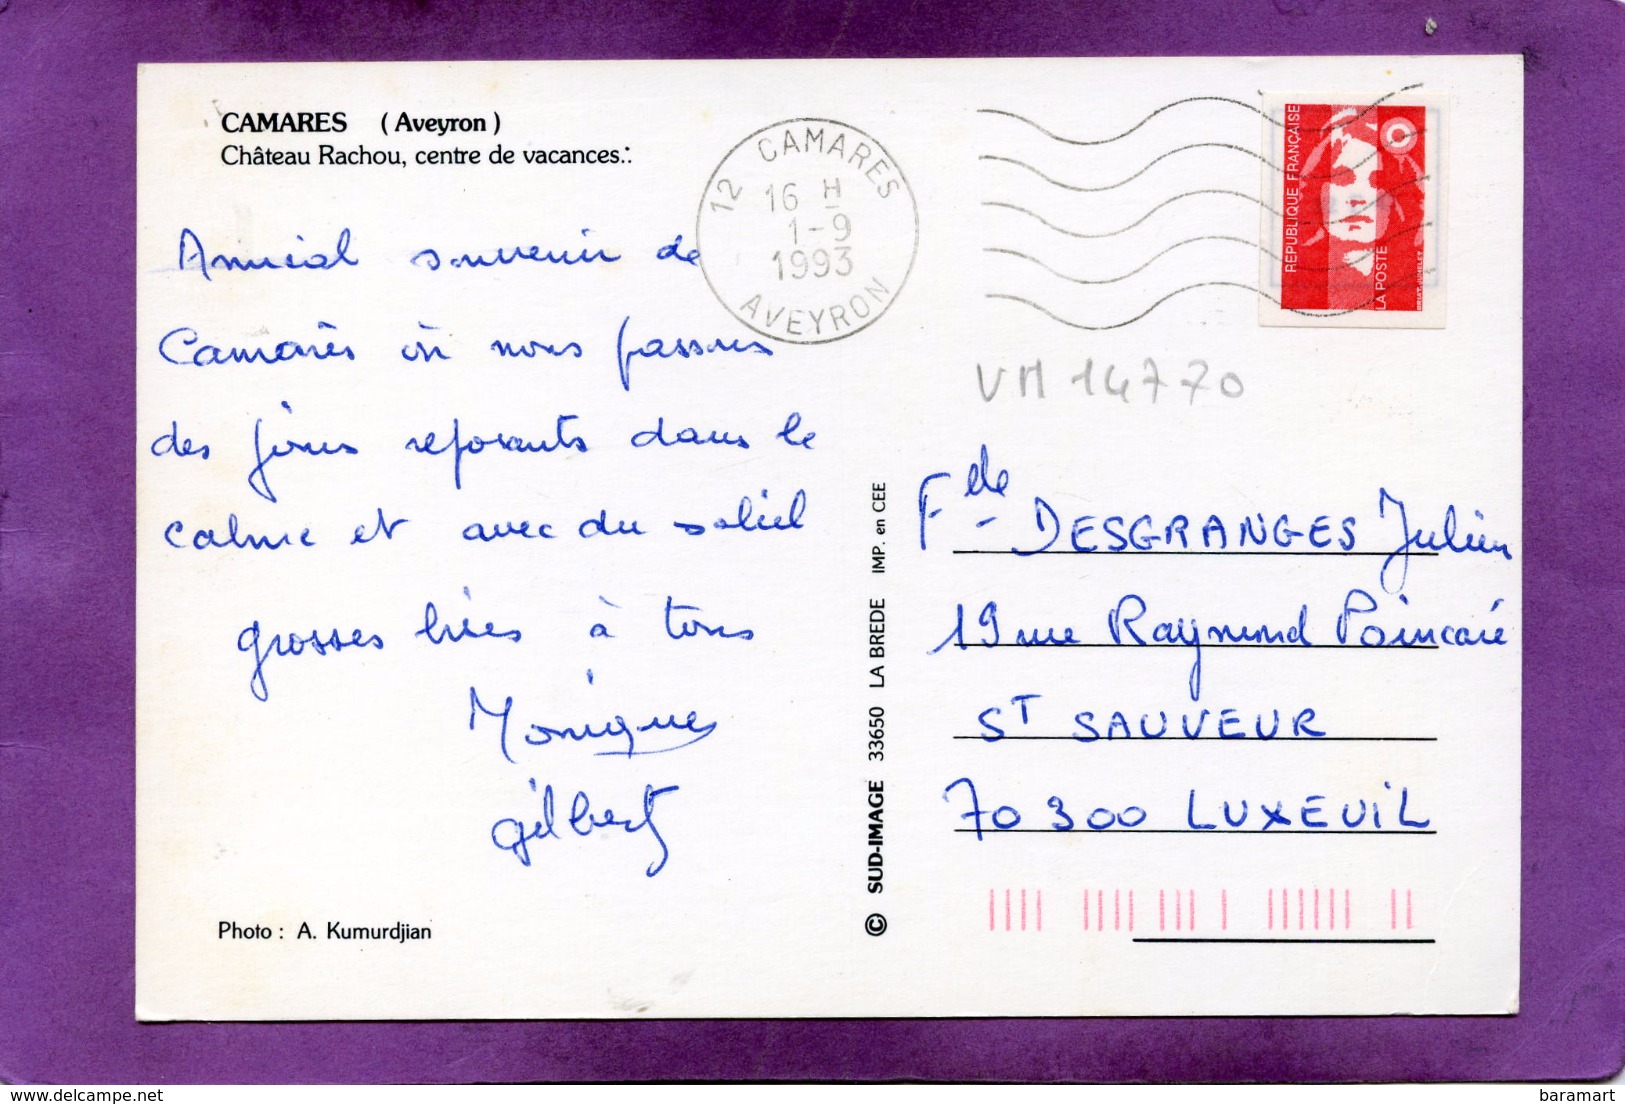 CAMARES (Aveyron)
Château Rachou, centre de vacances.:
12 CAMARES
16 H
1-9
1993
AVEYRON
REPUBLIQUE FRANÇAISE
LA POSTE
Amical souvenir de
Camarès où nous passons
des jours reposants dans le
calme et avec du soleil
grosses bises à tous
Monique
gilbert
VM 14770
Fde - DESGRANGES Julien
19 rue Raymond Poincaré
ST SAUVEUR
70 300 LUXEUIL
Photo : A. Kumurdjian
© SUD-IMAGE 33650 LA BREDE IMP. en CEE
baramart